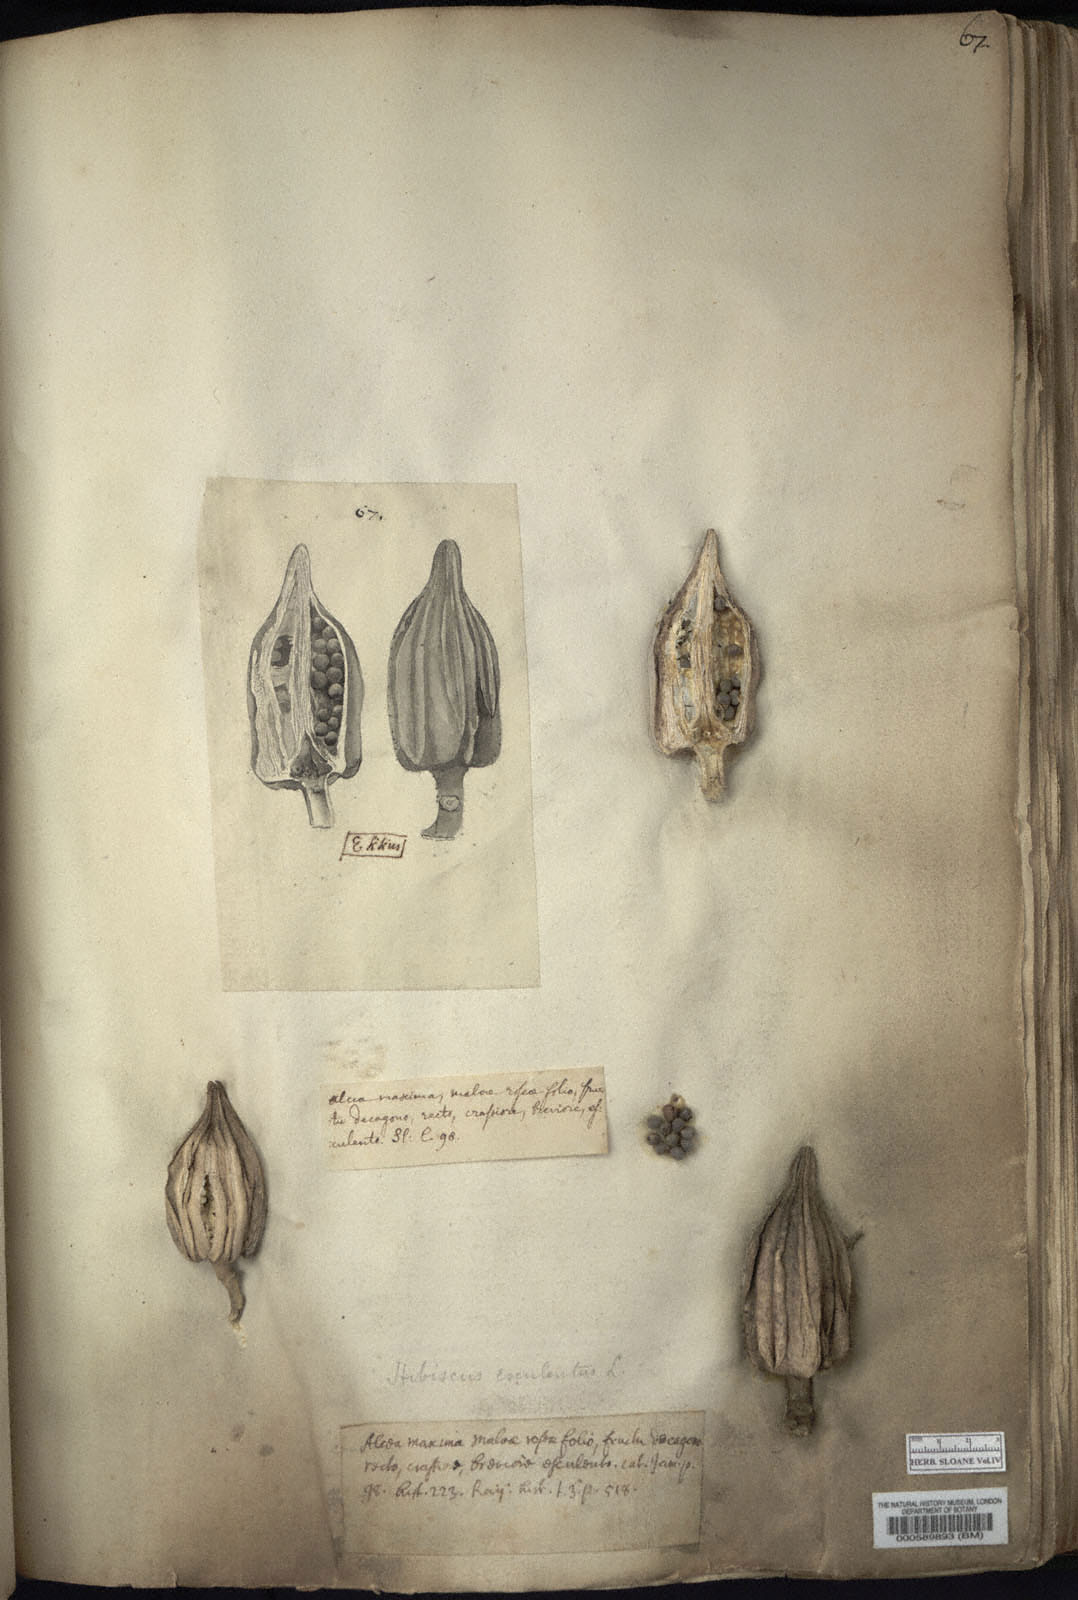 67.
67.
E. kkius
Alcea maxima, malvæ roseæ folio, fruc-
tu decagono, recto, crassiore, breviore, es-
culento. Sl. C. 98.
Hibiscus esculentus L.
Alcea maxima Malvæ roseæ folio, fructu decagono
recto, crassiore, breviore esculento. cat. Jam. p.
98. Hist. 223. Raij. hist. t. 3. p. 518.
HERB. SLOANE Vol.IV
THE NATURAL HISTORY MUSEUM, LONDON
DEPARTMENT OF BOTANY
000589893 (BM)